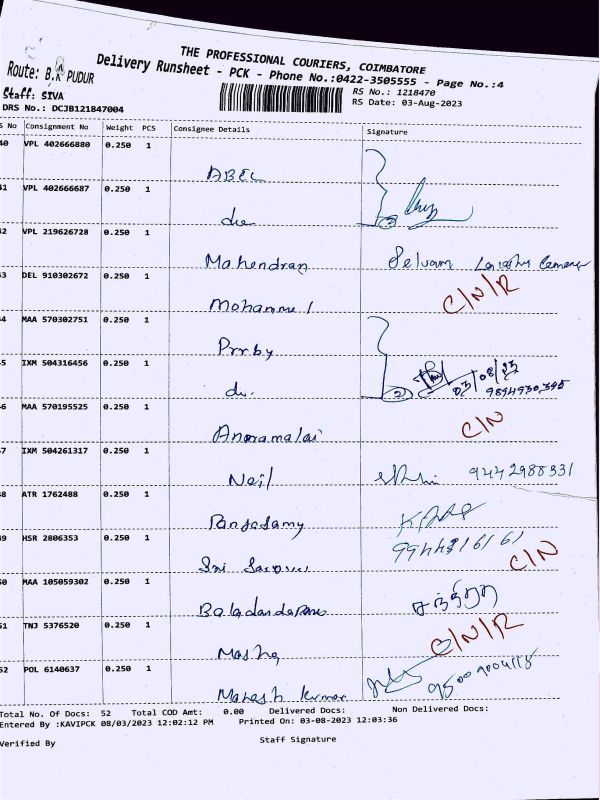 THE PROFESSIONAL COURIERS, COIMBATORE
Route: B.K PUDUR
Delivery Runsheet - PCK - Phone No.:0422-3505555 - Page No.:4
Staff: SIVA
RS No.: 1218470
DRS No.: DCJB121847004
RS Date: 03-Aug-2023
S No Consignment No Weight PCS Consignee Details Signature
40 VPL 402666880 0.250 1
ABEL
41 VPL 402666687 0.250 1
do
42 VPL 219626728 0.250 1
Mahendran Selvam
43 DEL 910302672 0.250 1 C/N/R
Mohamme
44 MAA 570302751 0.250 1
Prrby
45 IXM 504316456 0.250 1 03/08/23
do. 2 9894930395
46 MAA 570195525 0.250 1 C/N
Annamalai
47 IXM 504261317 0.250 1
Neil 9442988331
48 ATR 1762488 0.250 1
Rangasamy
49 HSR 2806353 0.250 1 C/N
Sri
50 MAA 105059302 0.250 1
51 TNJ 5376520 0.250 1 C/N/R
Masha
52 POL 6140637 0.250 1
Mahesh kumar
Total No. Of Docs: 52 Total COD Amt: 0.00 Delivered Docs: Non Delivered Docs:
Entered By :KAVIPCK 08/03/2023 12:02:12 PM Printed On: 03-08-2023 12:03:36
Verified By Staff Signature